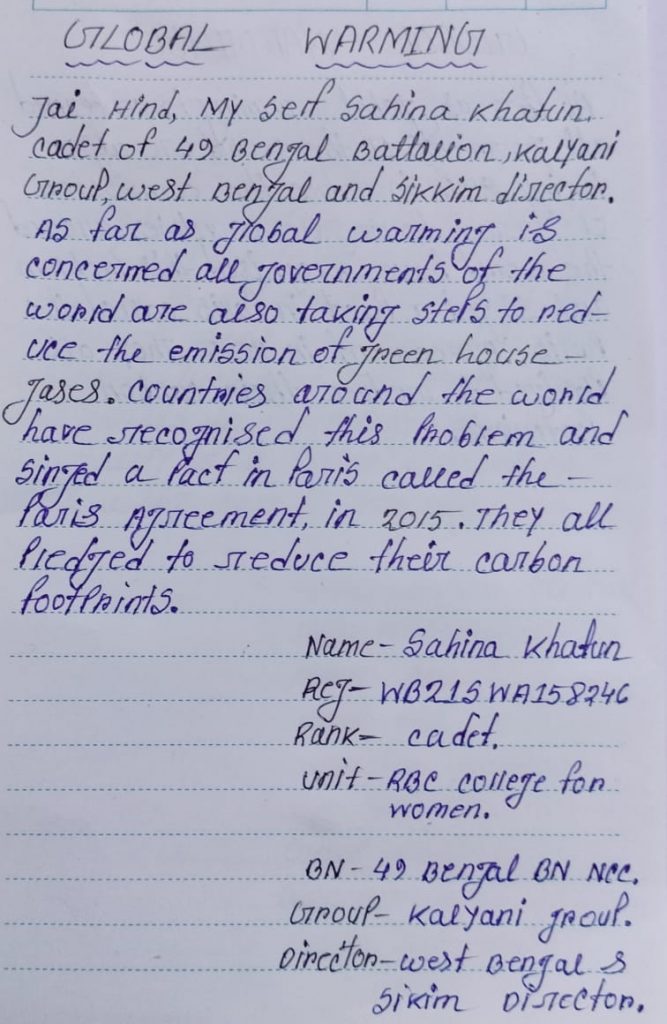 GLOBAL WARMING
Jai Hind, MY Self Sahina Khatun.
cadet of 49 Bengal Battalion, Kalyani
Group, West Bengal and Sikkim director.
As far as global warming is
concerned all governments of the
world are also taking steps to red-
uce the emission of green house -
gases. countries around the world
have recognised this Problem and
singed a Pact in Paris called the -
Paris Agreement, in 2015. They all
Pledged to reduce their carbon
footprints.
Name - Sahina Khatun
Reg - WB21SWA158246
Rank - cadet.
Unit - RBC college for
women.
BN - 49 Bengal BN NCC.
Group - Kalyani group.
Director - West Bengal &
Sikim Director.